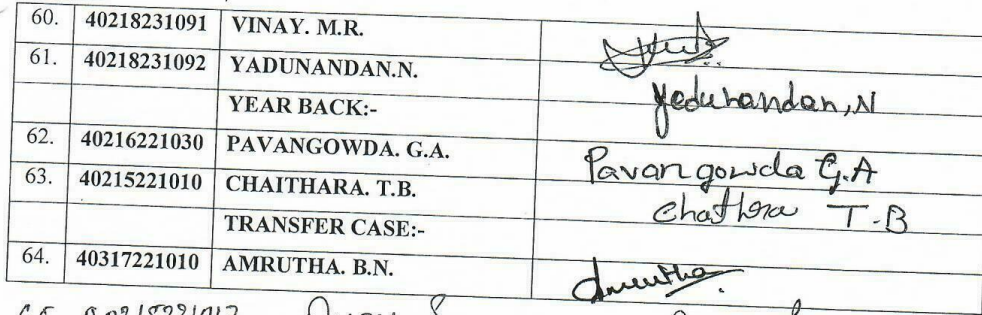 60. 40218231091 VINAY. M.R.
61. 40218231092 YADUNANDAN.N. Yedunandan, N
YEAR BACK:-
62. 40216221030 PAVANGOWDA. G.A. Pavangowda G.A
63. 40215221010 CHAITHARA. T.B. Chathra T.B
TRANSFER CASE:-
64. 40317221010 AMRUTHA. B.N. Amrutha